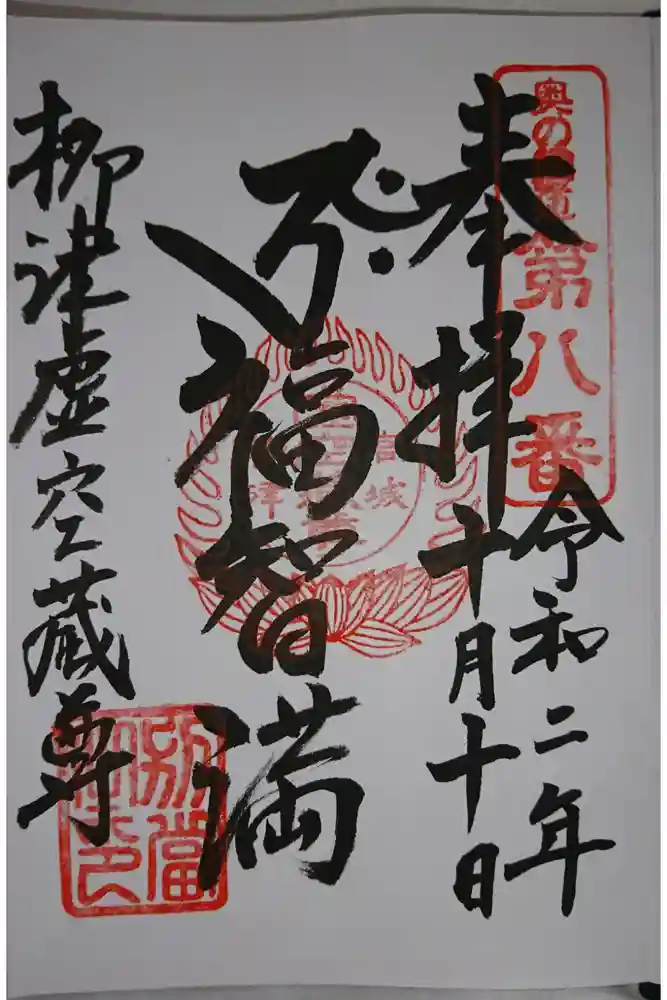 奥の
第八番
奉拝
令和二年
十月十日
福智満
柳津虚空蔵尊
別當